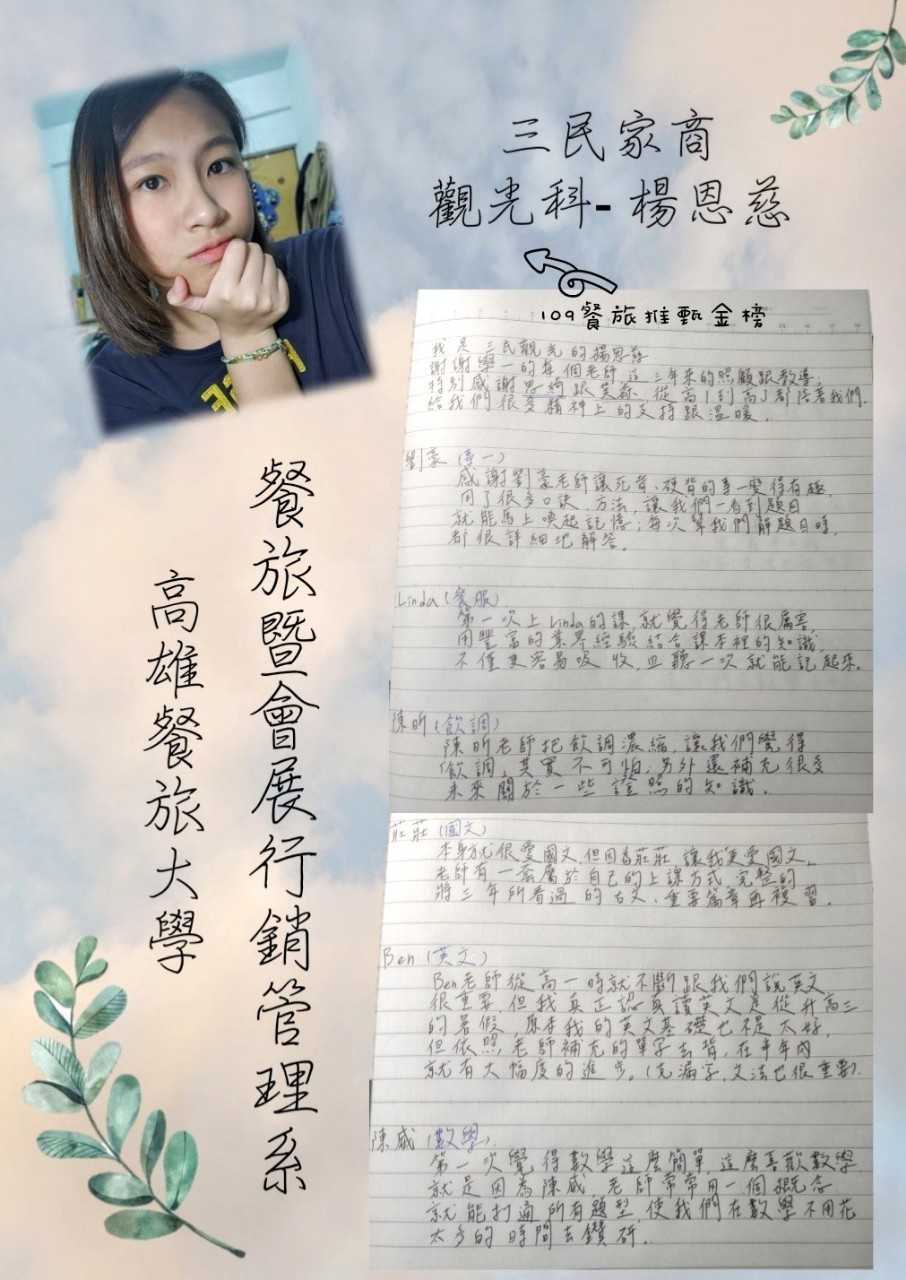 三民家商
觀光科-楊恩慈
109餐旅推甄金榜
餐旅暨會展行銷管理系
高雄餐旅大學
我是三民觀光的楊恩慈
謝謝學一的每個老師這三年來的照顧跟教導,
特別感謝思綺跟芙蓀,從高1到高3都陪著我們.
給我們很多精神上的支持跟溫暖.
劉豪(專一)
感謝劉豪老師讓死背、硬背的專一變得有趣,
用了很多口訣、方法,讓我們一看到題目
就能馬上喚起記憶;每次幫我們解題目時,
都很詳細地解答。
Linda(餐服)
第一次上Linda的課,就覺得老師很厲害,
用豐富的業界經驗結合課本裡的知識,
不僅更容易吸收,且聽一次就能記起來.
陳昕(飲調)
陳昕老師把飲調濃縮,讓我們覺得
飲調,其實不可怕,另外還補充很多
未來關於一些證照的知識.
莊莊(國文)
本身就很愛國文,但因為莊莊讓我更愛國文。
老師有一套屬於自己的上課方式,完整的
將三年所看過的古文、重要篇章再複習.
Ben(英文)
Ben老師從高一時就不斷跟我們說英文
很重要,但我真正認真讀英文是從升高三
的暑假,原本我的英文基礎也不是太好,
但依照老師補充的單字去背,在半年內
就有大幅度的進步。(克漏字,文法也很重要).
陳威(數學)
第一次覺得數學這麼簡單,這麼喜歡數學
就是因為陳威,老師常常用一個概念
就能打遍所有題型,使我們在數學不用花
太多的時間去鑽研.